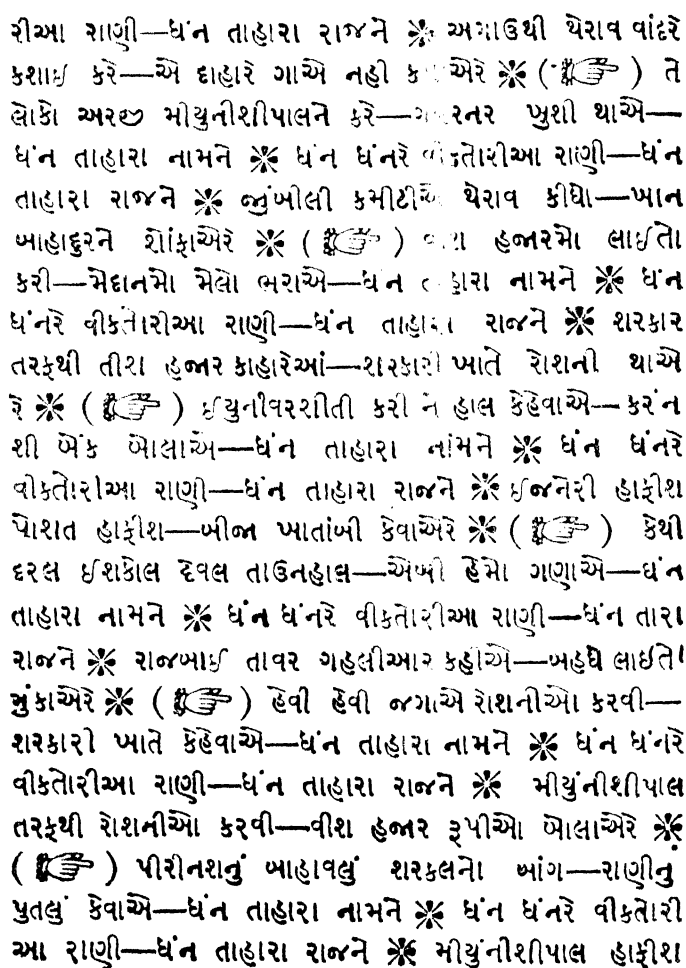 રીઆ રાણી—ધંન તાહારા રાજને ※ અગાઉથી થેરાવ વાંદરે
કશાઈ કરે—એ દાહારે ગાએ નહી ※ (☞) તે
લોકો અરજી મીયુનીશીપાલને કરે— ખુશી થાએ—
ધંન તાહારા નામને ※ ધંન ધંનરે વીકતોરીઆ રાણી—ધંન
તાહારા રાજને ※ જીુંબીલી કમીટીએ થેરાવ કીધો—ખાન
બાહાદુરને શોંફાએરે ※ (☞) વીશ હજારમો લાઈતો
કરી—મેદાનમો મેલો ભરાએ—ધંન તાહારા નામને ※ ધંન
ધંનરે વીકતોરીઆ રાણી—ધંન તાહારા રાજને ※ શરકાર
તરફથી તીશ હજાર કાહારેઆં—શરકારી ખાતે રોશની થાએ
રે ※ (☞) ઈયુનીવરશીતી કરી ને હાલ કેહેવાએ—કરંન
શી બેંક બોલાએ—ધંન તાહારા નાંમને ※ ધંન ધંનરે
વીકતોરીઆ રાણી—ધંન તાહારા રાજને ※ ઈજનેરી હાફીશ
પોશત હાફીશ—બીજા ખાતાંબી કેવાએરે ※ (☞) કેથી
દરલ ઈશકોલ દેવલ તાઉનહાલ—એબી હેમો ગણાએ—ધંન
તાહારા નામને ※ ધંન ધંનરે વીકતોરીઆ રાણી—ધંન તારા
રાજને ※ રાજબાઈ તાવર ગહલીઆર કહીએ—બહધે લાઈતો
મુંકાએરે ※ (☞) હેવી હેવી જગાએ રોશનીઓ કરવી—
શરકારી ખાતે કેહેવાએ—ધંન તાહારા નામને ※ ધંન ધંનરે
વીકતોરીઆ રાણી—ધંન તાહારા રાજને ※ મીયુંનીશીપાલ
તરફથી રોશનીઓ કરવી—વીશ હજાર રૂપીઓ બોલાએરે ※
(☞) પીરીનશનું બાહાવલું શરકલનો બાંગ—રાણીનું
પુતલું કેવાએ—ધંન તાહારા નામને ※ ધંન ધંનરે વીકતોરી
આ રાણી—ધંન તાહારા રાજને ※ મીયુંનીશીપાલ હાફીશ